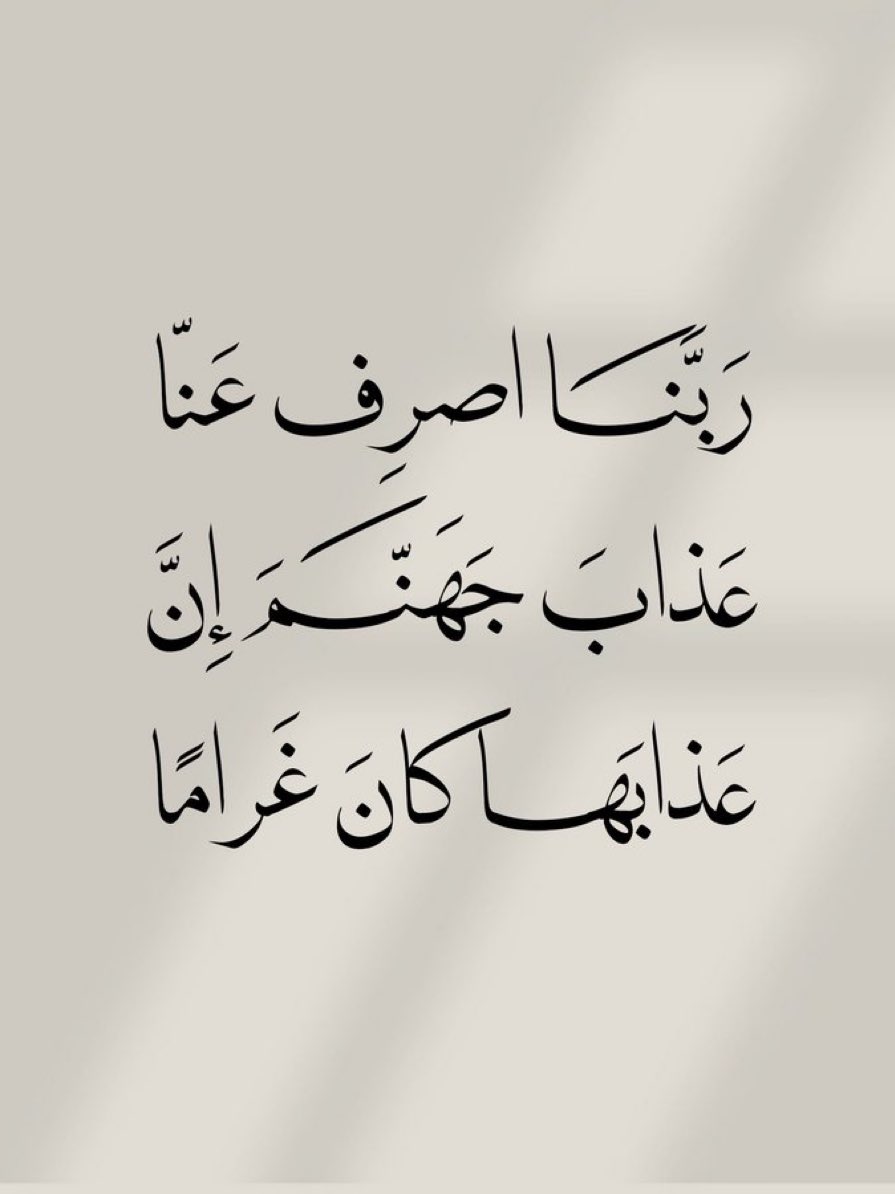 رَبَّنَا اصرِف عَنّا
عَذابَ جَهَنَّمَ إِنَّ
عَذابَها كانَ غَرامًا